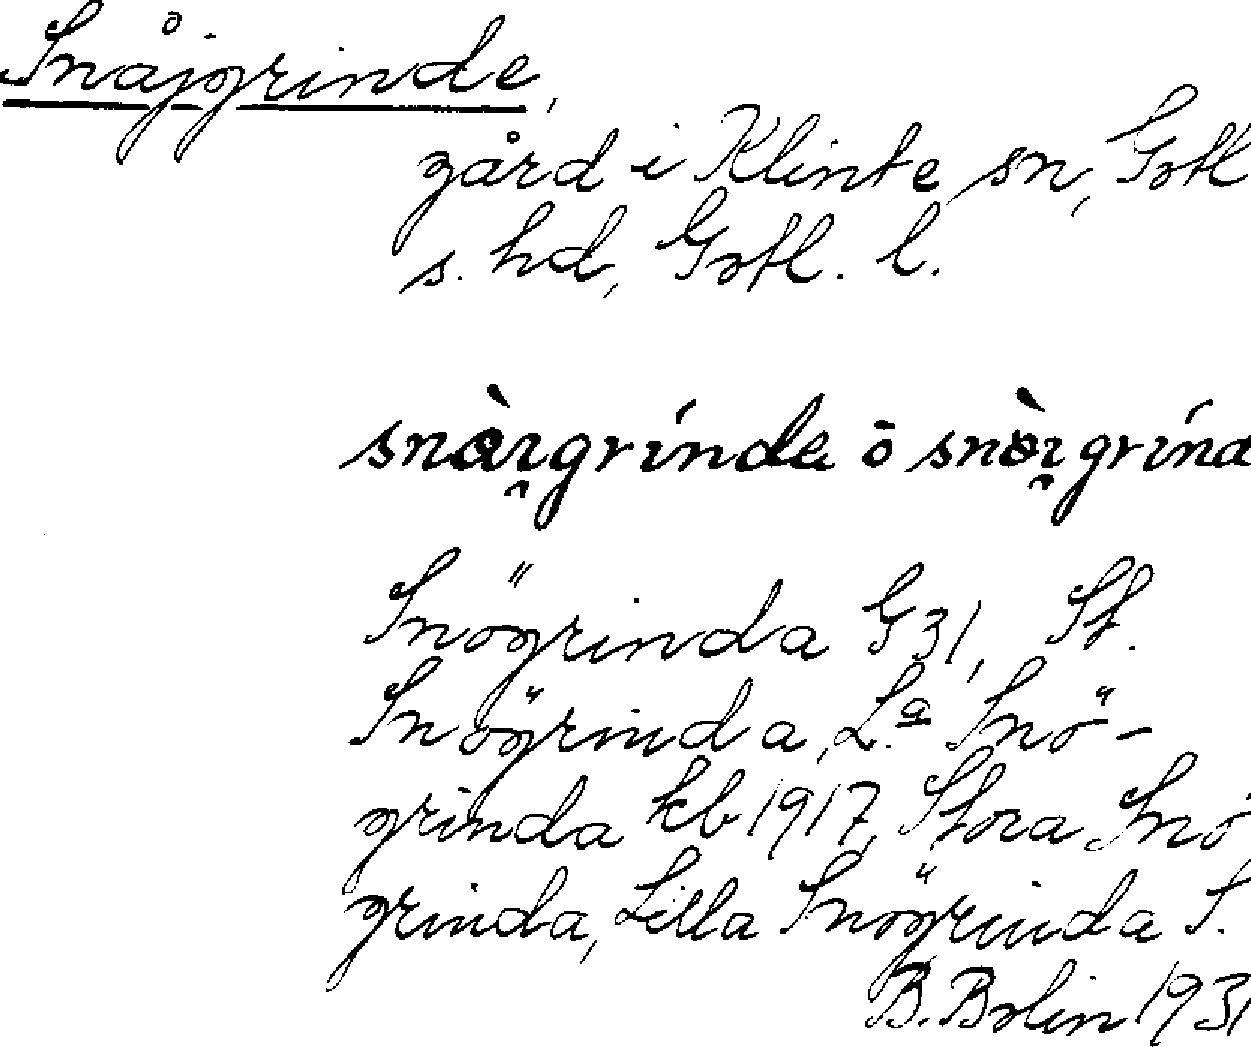 Snåjgrinde,
gård i Klinte sn, Gotl
s. hd, Gotl. l.
ō
Snögrinda G31, St.
Snögrinda, L:a Snö-
grinda kb 1917, Stora Snö
grinda, Lilla Snögrinda S.
B. Bolin 1931